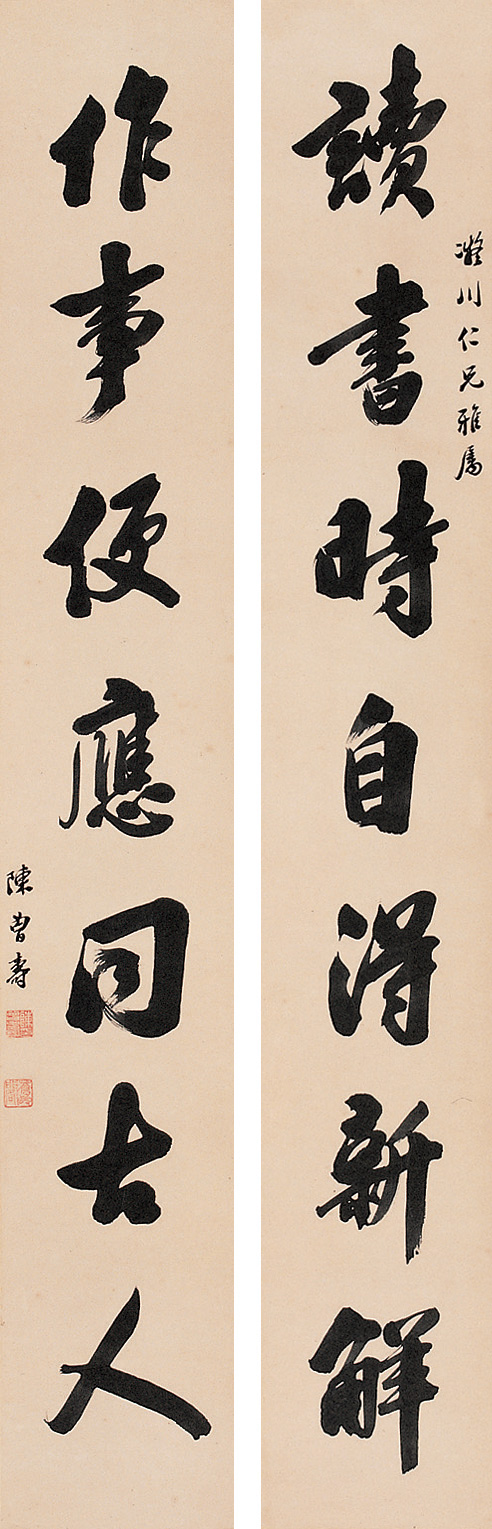 讀書時自得新解
凝川仁兄雅屬
作事便應同古人
陳曾壽